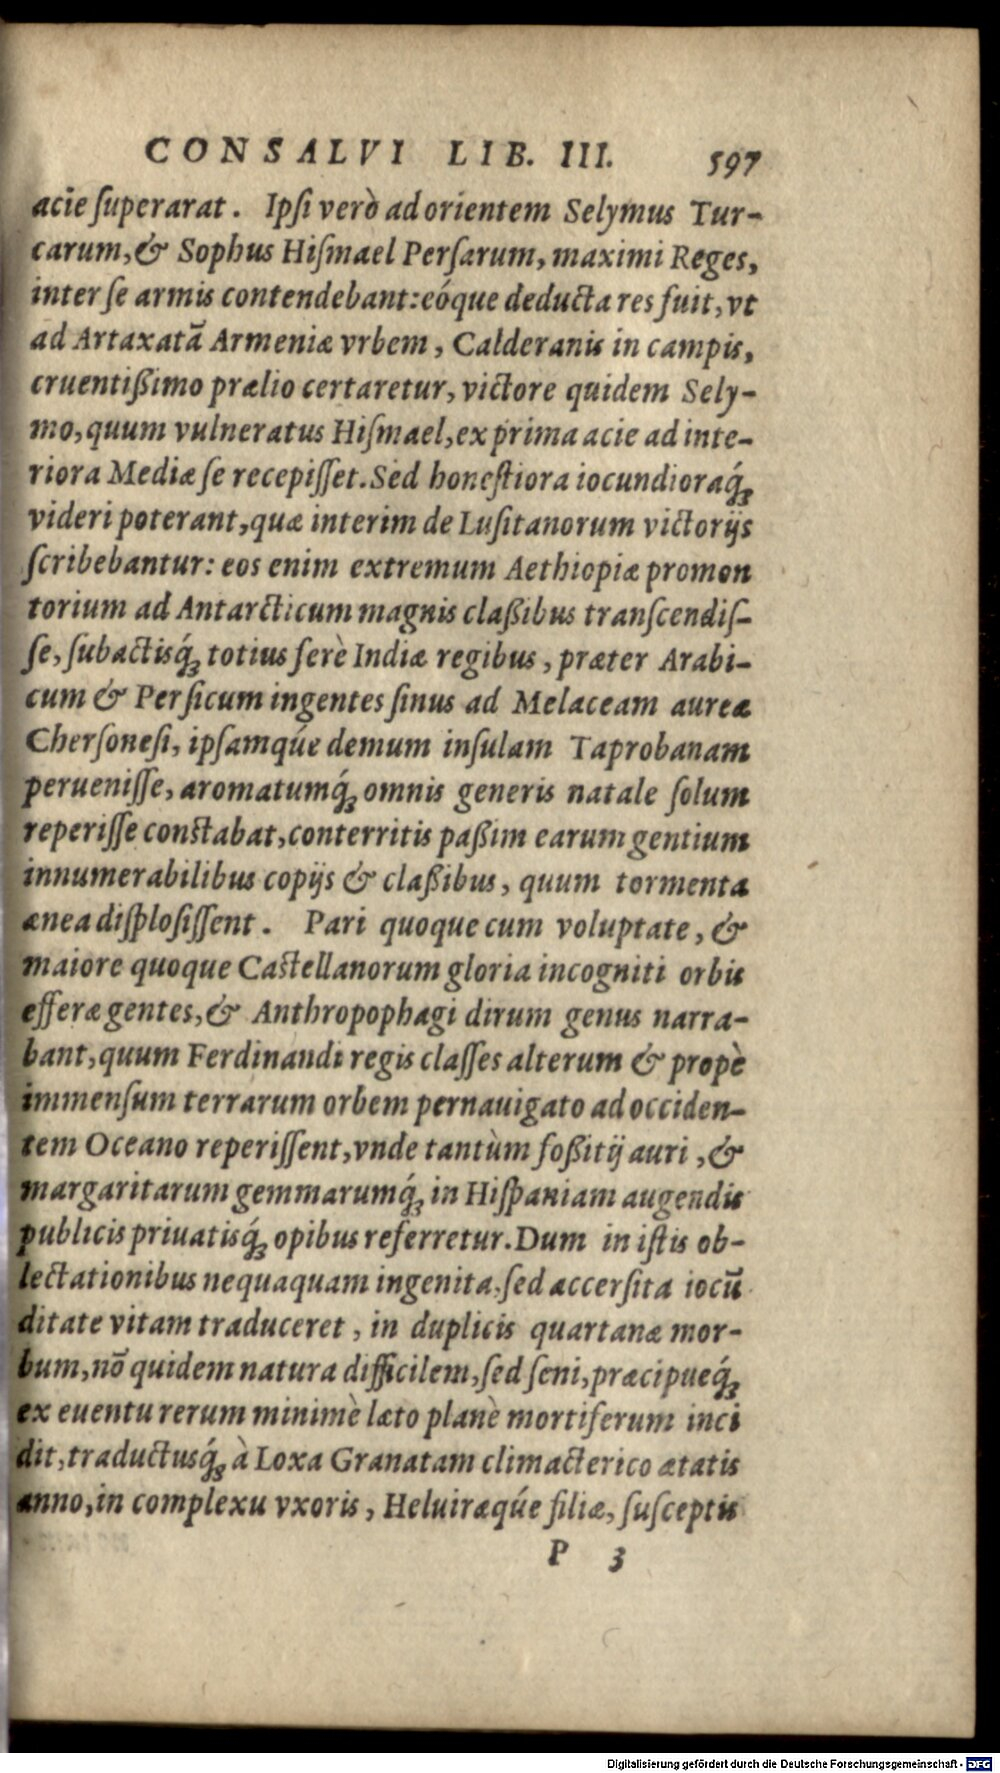 CONSALVI LIB. III. 597
acie ſuperarat. Ipſi verò ad orientem Selymus Tur-
carum, & Sophus Hiſmael Perſarum, maximi Reges,
inter ſe armis contendebant: eóque deducta res fuit, vt
ad Artaxatã Armeniæ vrbem, Calderanis in campis,
cruentißimo prælio certaretur, victore quidem Sely-
mo, quum vulneratus Hiſmael, ex prima acie ad inte-
riora Mediæ ſe recepiſſet. Sed honeſtiora iocundioraq́;
videri poterant, quæ interim de Luſitanorum victorijs
ſcribebantur: eos enim extremum Aethiopiæ promon
torium ad Antarcticum magnis claßibus tranſcendiſ-
ſe, ſubactisq́; totius ferè Indiæ regibus, præter Arabi-
cum & Perſicum ingentes ſinus ad Melaceam aureæ
Cherſoneſi, ipſamqúe demum inſulam Taprobanam
perueniſſe, aromatumq́; omnis generis natale ſolum
reperiſſe conſtabat, conterritis paßim earum gentium
innumerabilibus copijs & claßibus, quum tormenta
ænea diſploſiſſent. Pari quoque cum voluptate, &
maiore quoque Caſtellanorum gloria incogniti orbis
efferæ gentes, & Anthropophagi dirum genus narra-
bant, quum Ferdinandi regis claſſes alterum & propè
immenſum terrarum orbem pernauigato ad occiden-
tem Oceano reperiſſent, vnde tantùm foßitij auri, &
margaritarum gemmarumq́; in Hiſpaniam augendis
publicis priuatisq́; opibus referretur. Dum in iſtis ob-
lectationibus nequaquam ingenita, ſed accerſita iocũ
ditate vitam traduceret, in duplicis quartanæ mor-
bum, nõ quidem natura difficilem, ſed ſeni, præcipueq́;
ex euentu rerum minimè læto planè mortiferum inci
dit, traductusq́; à Loxa Granatam climacterico ætatis
anno, in complexu vxoris, Heluiræqúe filiæ, ſuſceptis
P 3
Digitalisierung gefördert durch die Deutsche Forschungsgemeinschaft - DFG